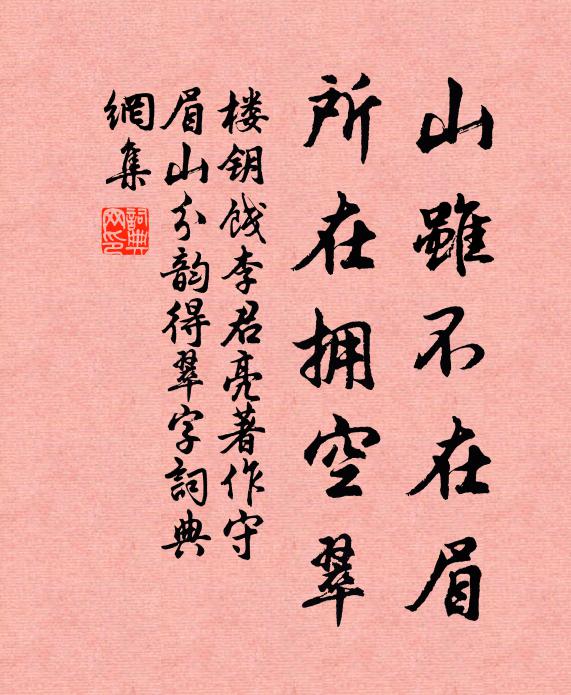 山雖不在眉
所在拥空翠
楼钥饯李君亮著作守
眉山分韵得翠字詞典
網集
詞典网印